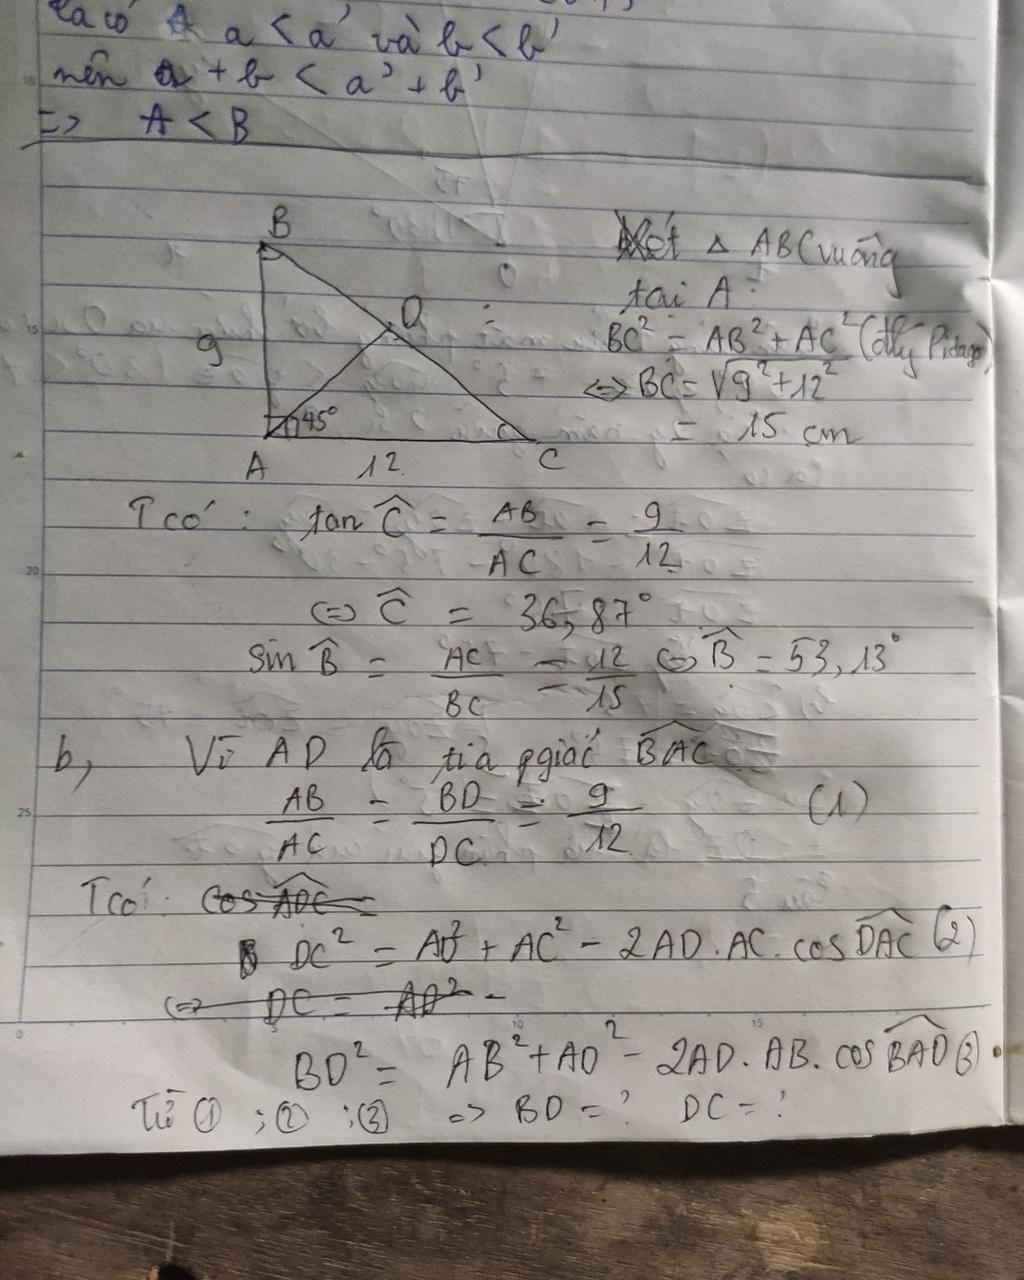 ta có a < a' và b < b'
nên a + b < a' + b'
=> A < B
B
Xét Δ ABC vuông
tại A :
D
9
BC² = AB² + AC² (đlý Pitago)
<=> BC = √9² + 12²
= 15 cm
45°
A 12 C
T có : tan Ĉ = AB/AC = 9/12
<=> Ĉ = 36,87°
sin B̂ = AC/BC = 12/15 <=> B̂ = 53,13°
b, Vì AD là tia pgiác BAC
AB/AC = BD/DC = 9/12 (1)
T có: cos ADC =
DC² = AD² + AC² - 2AD.AC.cos DAC (2)
<=> DC = AD² -
BD² = AB² + AD² - 2AD.AB.cos BAD (3)
Từ ① ; ② ; ③ => BD = ? DC = ?